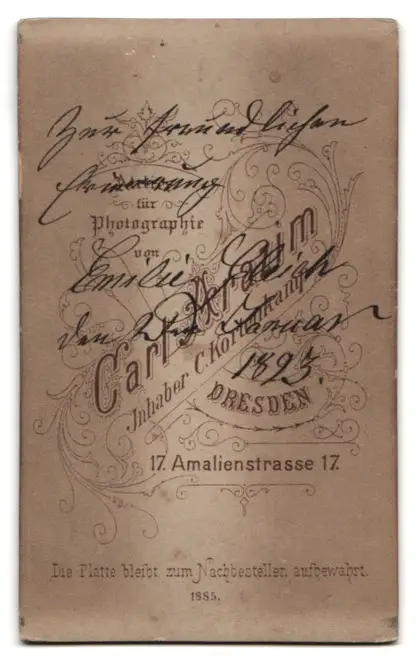 Zur freundlichen
Erinnerung
für
Photographie
von
Emilie
den Januar
1893.
Carl Arnim
Inhaber C. Kortenkamp
DRESDEN.
17. Amalienstrasse 17.
Die Platte bleibt zum Nachbestellen aufbewahrt.
1885.